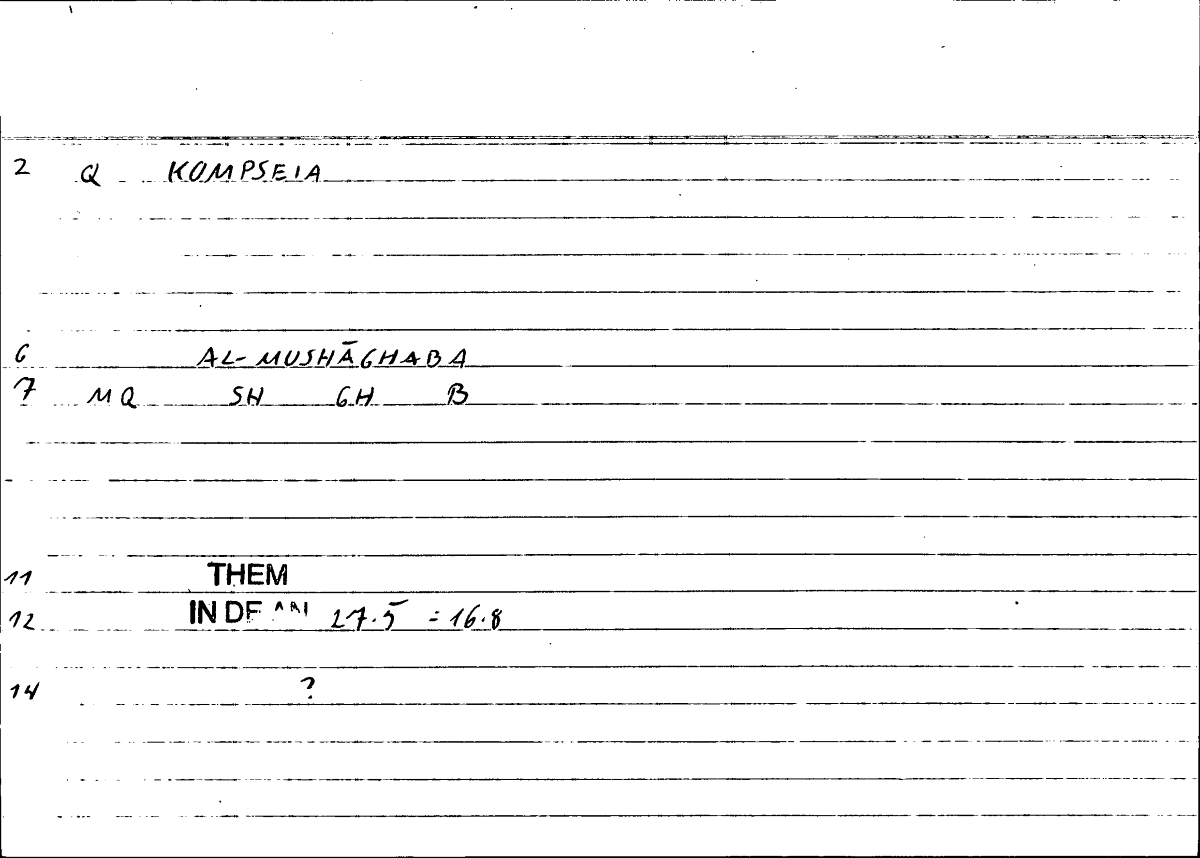 2 Q KOMPSEIA
6 AL-MUSHĀGHABA
7 MQ SH GH B
11 THEM
12 IN DE AN 27.5 = 16.8
14 ?